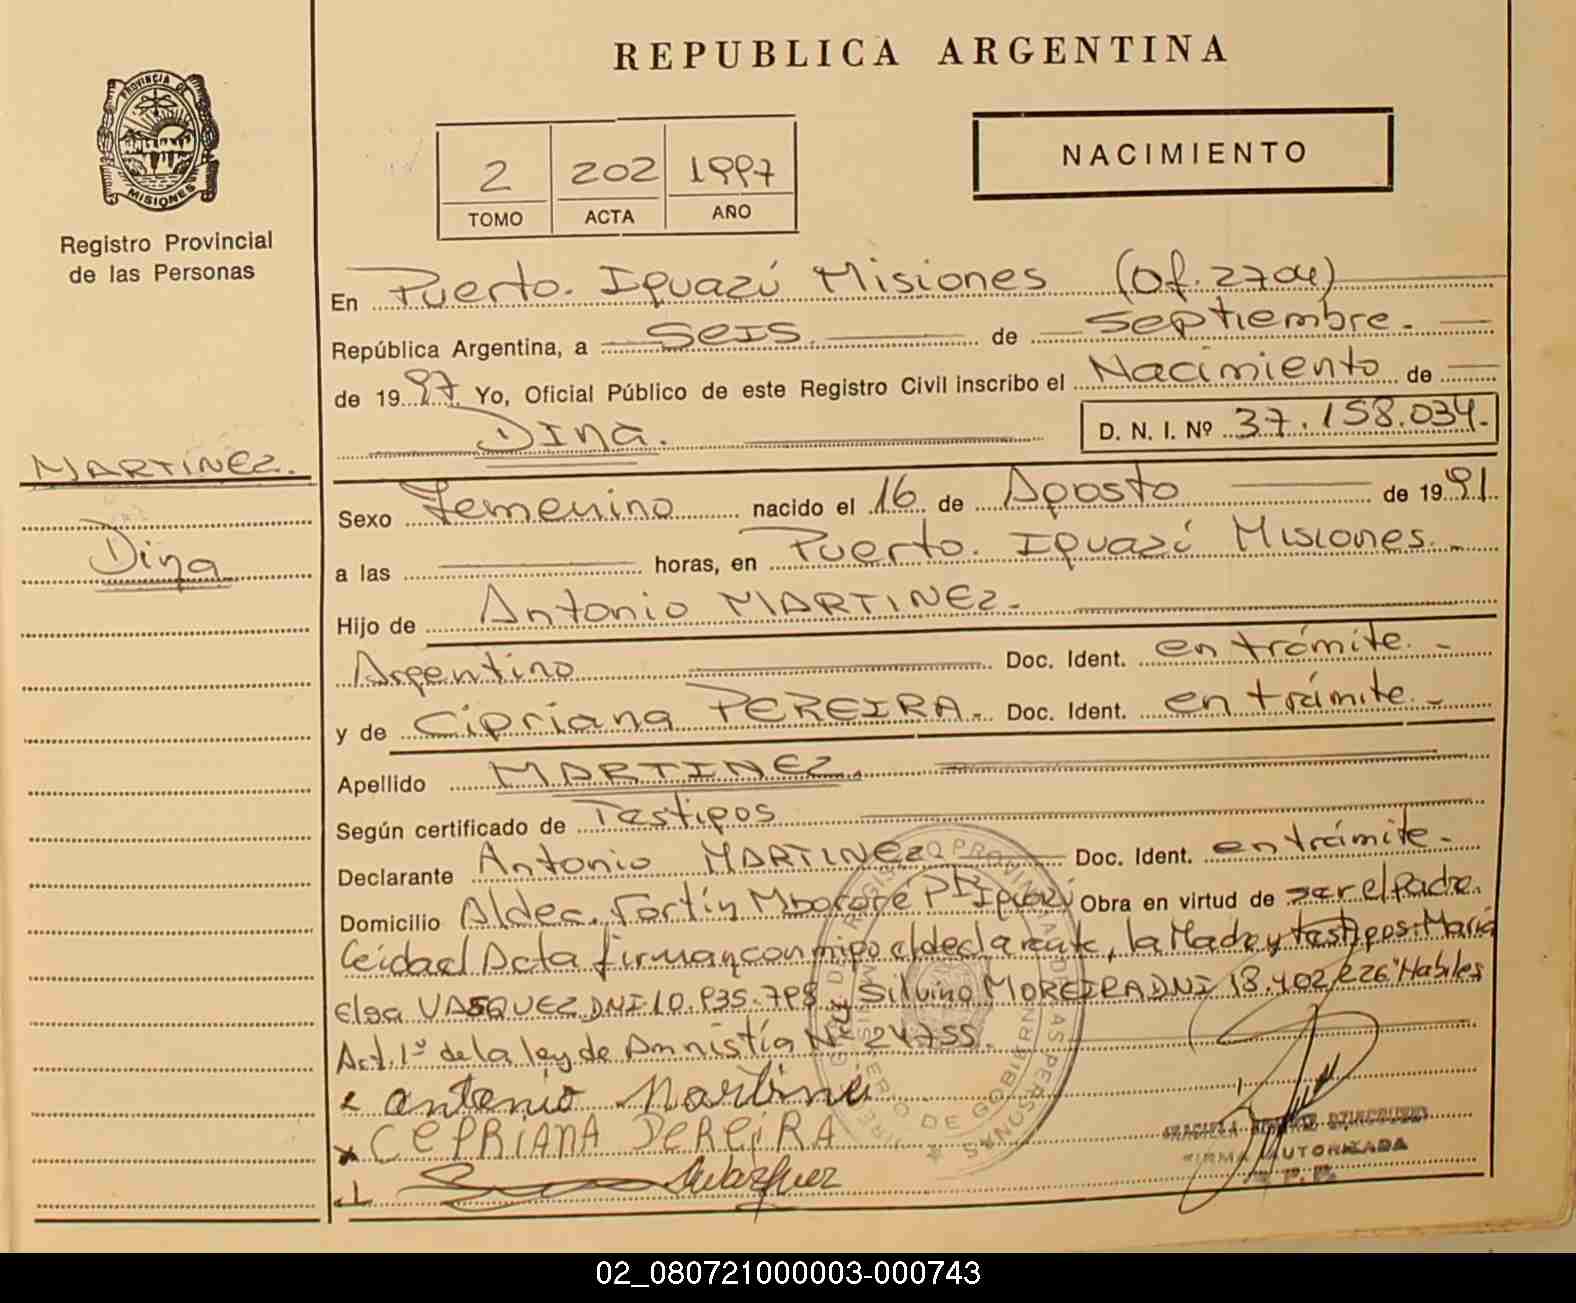 REPUBLICA ARGENTINA
PROVINCIA DE
MISIONES
Registro Provincial
de las Personas
2 202 1997
TOMO ACTA AÑO
NACIMIENTO
En Puerto. Iguazú Misiones (Of. 2704)
República Argentina, a Seis. de Septiembre.
de 1997. Yo, Oficial Público de este Registro Civil inscribo el Nacimiento de
Dina. D. N. I. Nº 37.158.034.
MARTINEZ.
Dina
Sexo Femenino nacido el 16 de Agosto de 1991.
a las horas, en Puerto. Iguazú Misiones.-
Hijo de Antonio MARTINEZ.
Argentino Doc. Ident. en trámite.-
y de Cipriana PEREIRA. Doc. Ident. en trámite.-
Apellido MARTINEZ.
Según certificado de Testigos
Declarante Antonio MARTINEZ Doc. Ident. en trámite.-
Domicilio Aldea. Fortín Mbororé Pto Iguazú Obra en virtud de ser el Padre.
Leidad Acta firman conmigo el declarante, la Madre y testigos: María
Elsa VASQUEZ DNI 10.935.798 y Silvino MOREIRA DNI 18.402.226 "Habiles
Art. 1º de la ley de Amnistía Nº 24755.
antonio Martine
CEPRIANA PEREIRA
Mvazquez
FIRMA AUTORIZADA
02_080721000003-000743